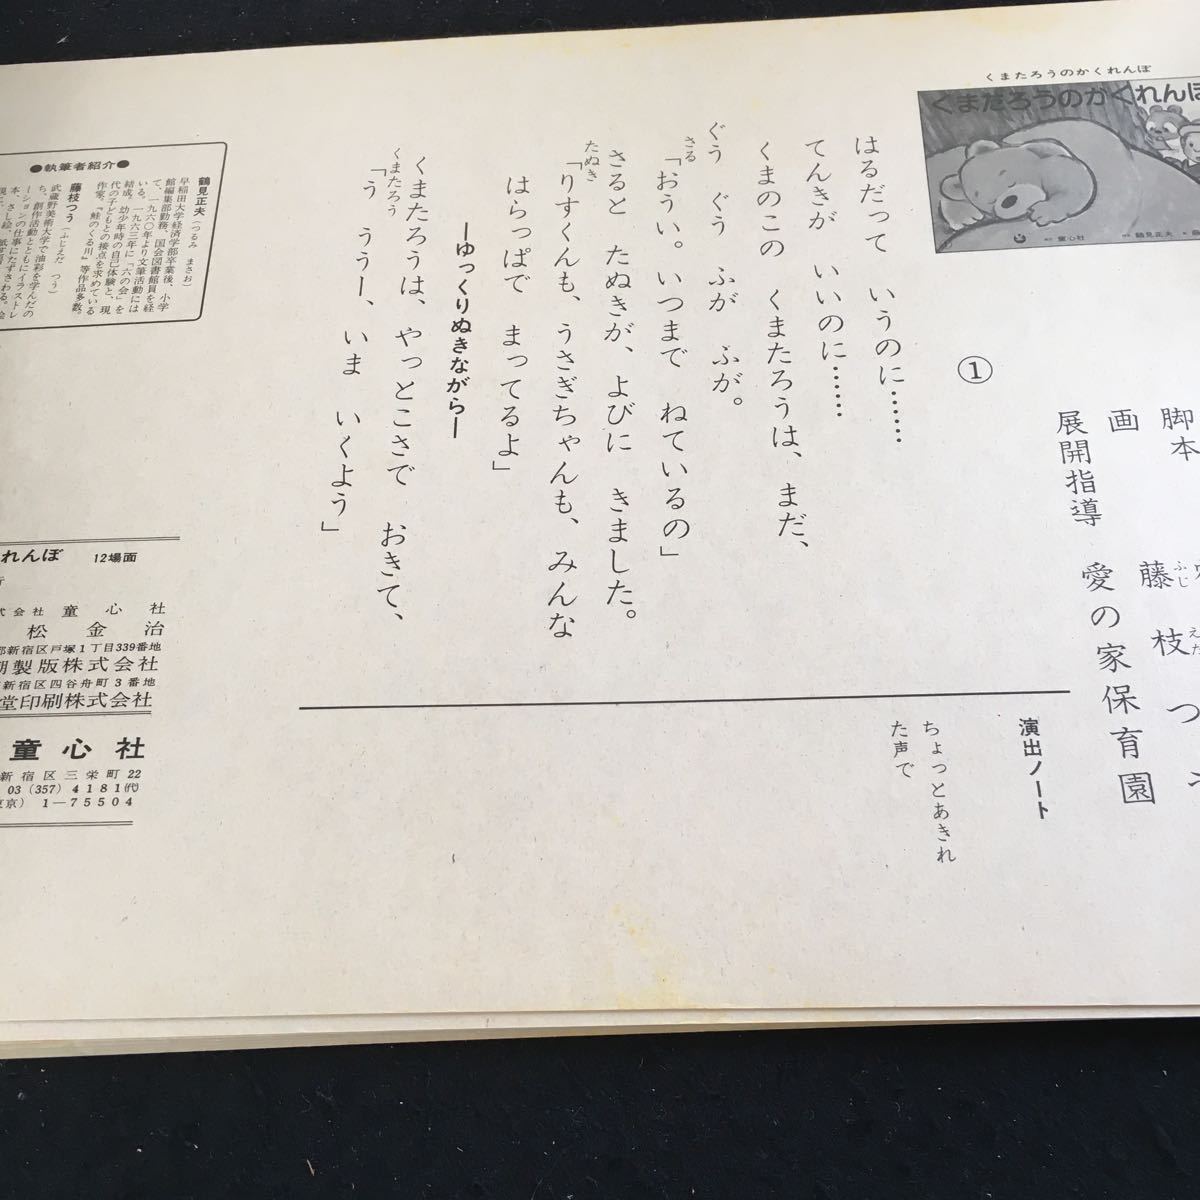 くまたろうのかくれんぼ
くまたろうのかくれんぼ
童心社
鶴見正夫
脚本
画
藤枝
ふじ
えだ
つう
展開指導
愛の家保育園
①
はるだって　いうのに……
てんきが　いいのに……
くまのこの　くまたろうは、まだ、
ぐう　ぐう　ふが　ふが。
さる
「おうい。いつまで　ねているの」
さると　たぬきが、よびに　きました。
たぬき
「りすくんも、うさぎちゃんも、みんな
はらっぱで　まってるよ」
―ゆっくりぬきながら―
くまたろうは、やっとこさで　おきて、
くまたろう
「う　ううー、いま　いくよう」
演出ノート
ちょっとあきれ
た声で
●執筆者紹介●
鶴見正夫（つるみ　まさお）
早稲田大学経済学部卒業後、小学
館編集部勤務、国会図書館員を経
て、一九六〇年より文筆活動には
いる。一九六三年に「六の会」を
結成。幼少年時の自己体験と、現
代の子どもとの接点を求めている
作家。『鮭のくる川』等作品多数。
藤枝つう（ふじえだ　つう）
武蔵野美術大学で油彩を学んだの
ち、創作活動とともにイラストレ
ーションの仕事にたずさわる。絵
本、さし絵、紙芝居
れんぼ　12場面
行
式会社　童心社
松金治
都新宿区戸塚1丁目339番地
製版株式会社
新宿区四谷舟町3番地
堂印刷株式会社
童心社
新宿区三栄町22
03(357)4181(代)
東京)1―75504